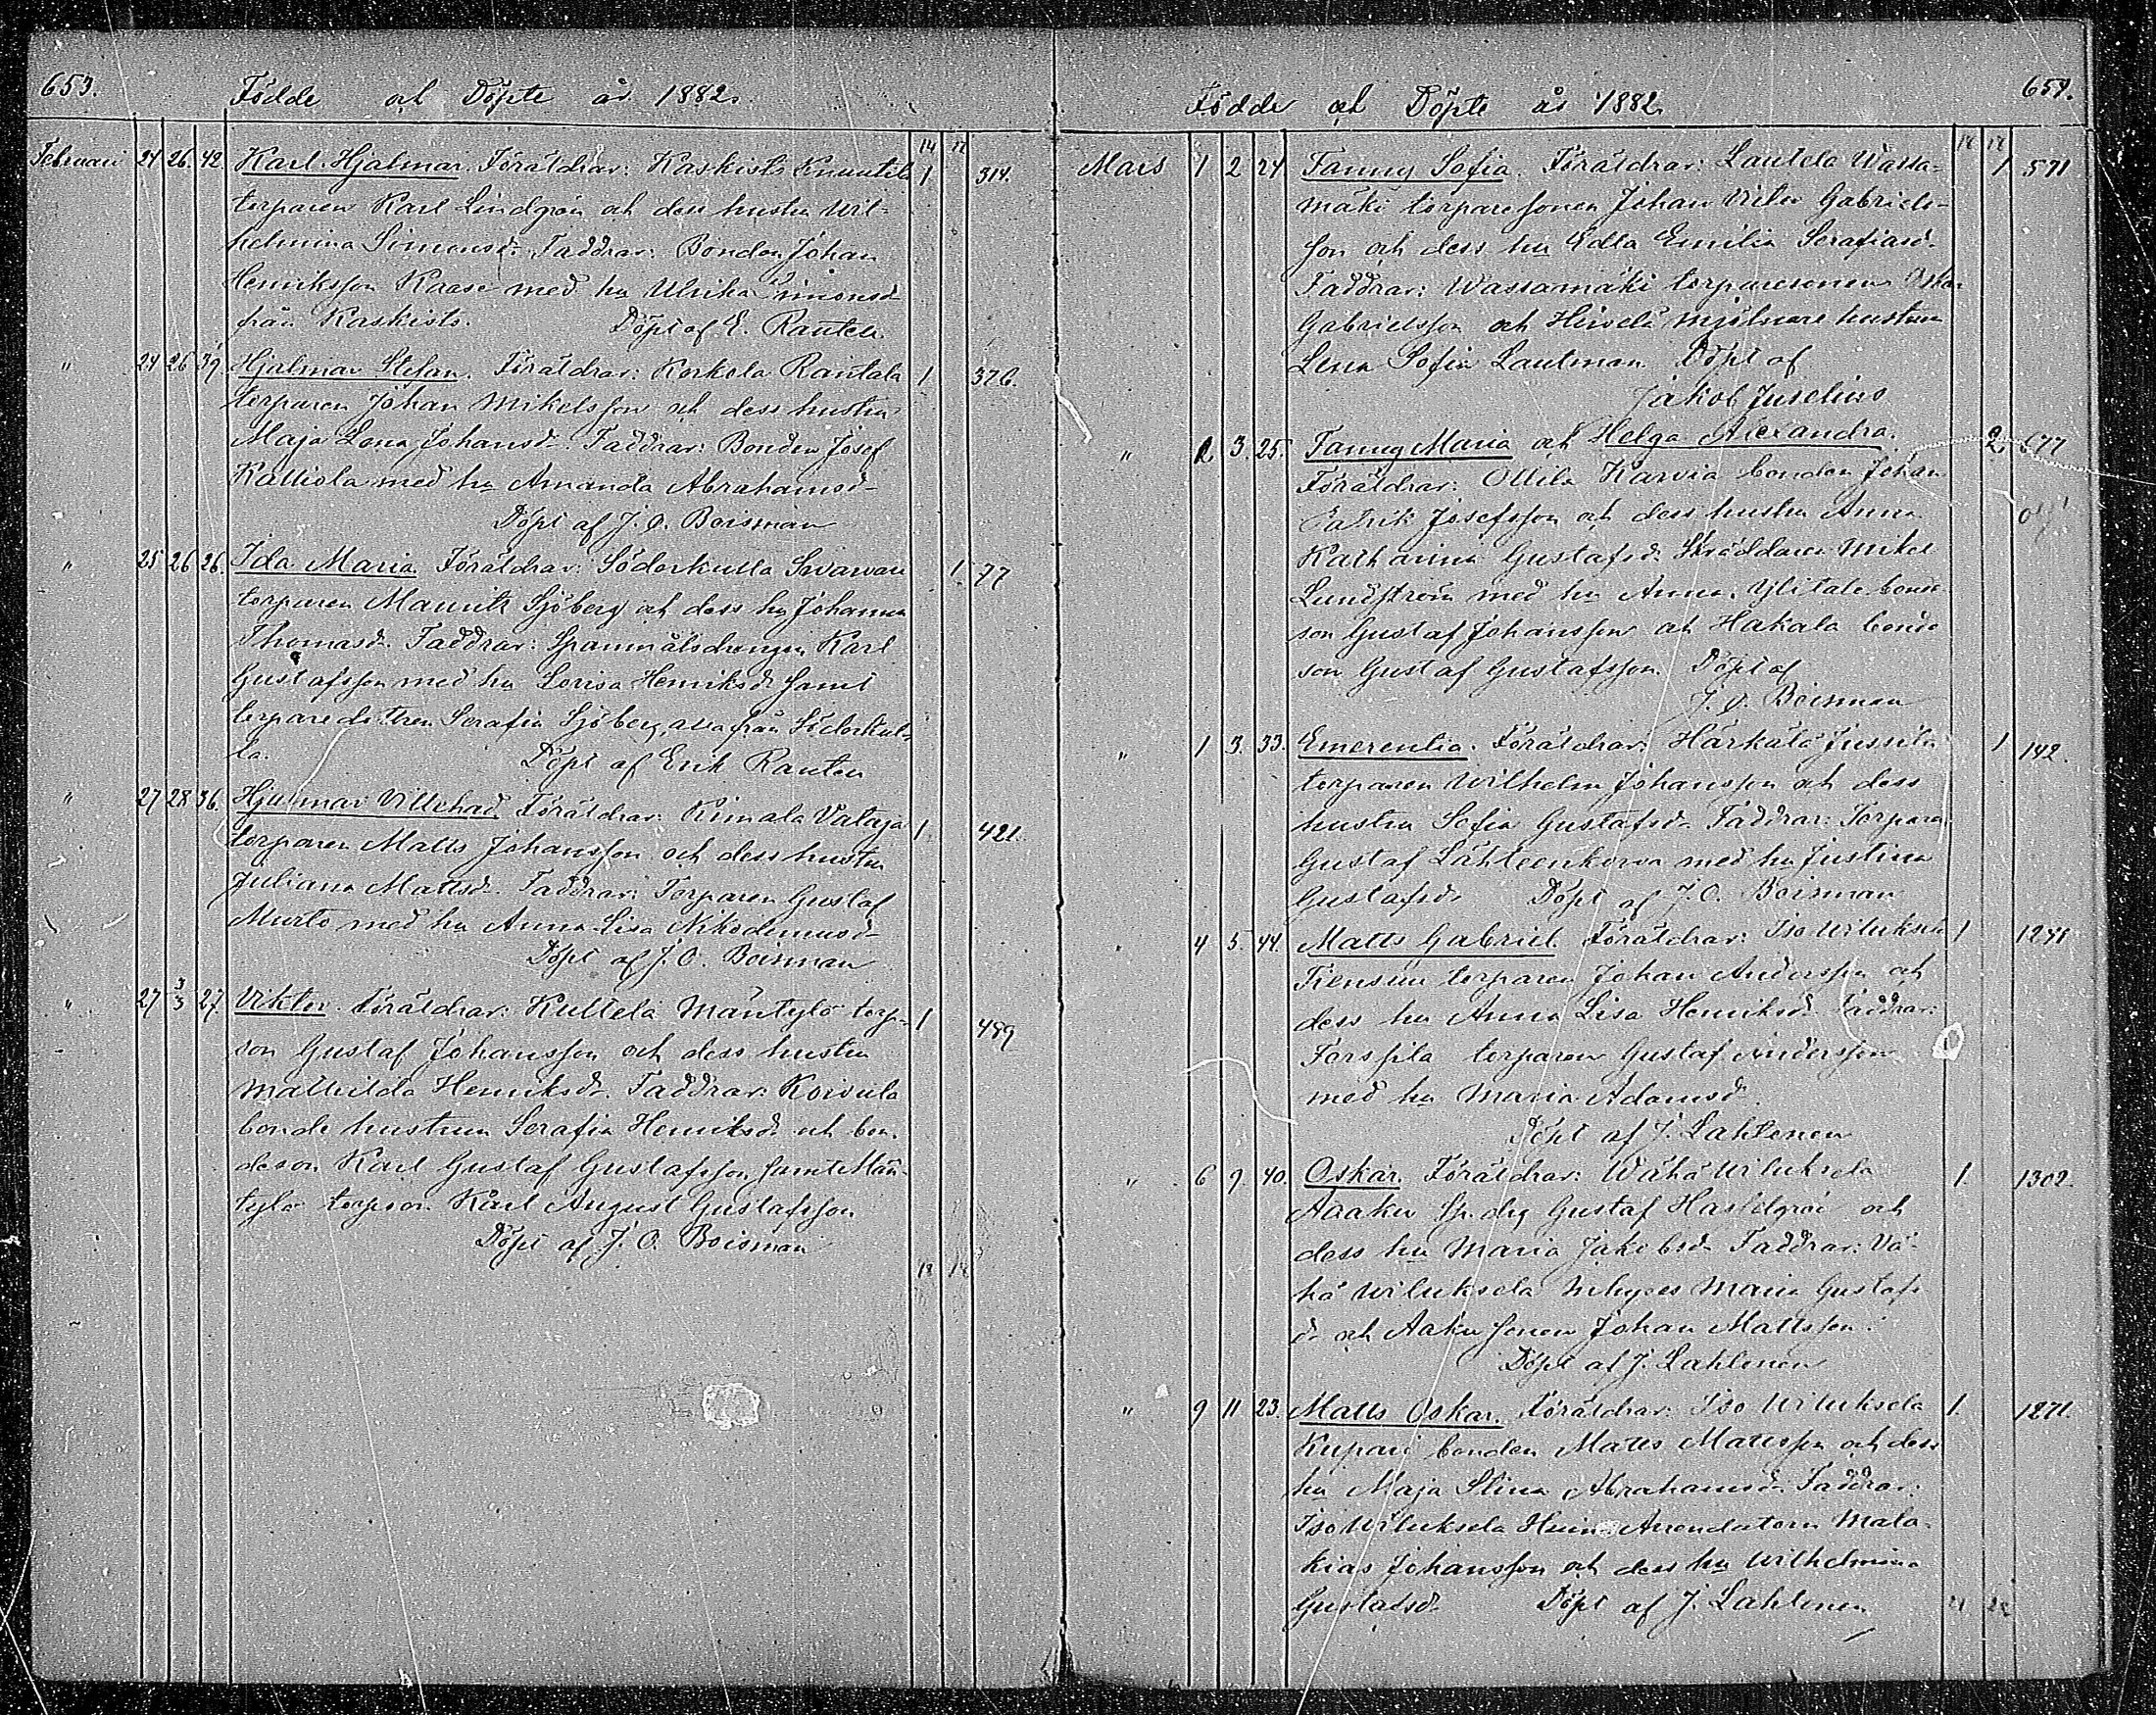 653.
Födde och Döpte år 1882.
14 17
Februari 24 26. 42. Karl Hjalmar. Föräldrar: Kaskisto Knuutila 1 314.
torparen Karl Lindgrén och dess hustru Wil-
helmina Simonsd. Faddrar: Bonden Johan
Henriksson Kaase med hu Ulrika Simonsd
från Kaskisto. Döpt af E. Rautell
" 24 26 39 Hjalmar Stefan. Föräldrar: Korkela Rantala 1 376.
torparen Johan Mikelsson och dess hustru
Maja Lena Johansd. Faddrar: Bonden Josef
Kalliola med hu Amanda Abrahamsd-
Döpt af J. O. Boisman
" 25 26 26. Ida Maria Föräldrar: Söderkulla 1. 77
torparen Maurits Sjöberg och dess hu Johanna
Thomasd. Faddrar: Spanmålsdrengen Karl
Gustafsson med hu Lovisa Henriksd samt
torparedottren Serafia Sjöberg, alla från Söderkul-
la. Döpt af Erik Rautell
" 27 28 36. Hjalmar Villehad. Föräldrar: Kimala Vataja 1 421.
torparen Matts Johansson och dess hustru
Juliana Mattsd. Faddrar: Torparen Gustaf
Murto med hu Anna Lisa Nikodemusd-
Döpt af J. O. Boisman
" 27 3/3 27. Viktor. Föräldrar: Kullela Mäntylö torp- 1 489
son Gustaf Johansson och dess hustru
Mathilda Henriksd. Faddrar: Koivula
bonde hustrun Serafia Henriksd. och bon-
deson Karl Gustaf Gustafsson samt Män-
tylö torpson Karl August Gustafsson
Döpt af J. O. Boisman
18 18
659.
Födde och Döpte år 1882.
18 18
Mars 1 2 24 Fanny Sofia. Föräldrar: Lautela Wassa- 1 571
mäki torparesonen Johan Viktor Gabriels-
son och dess hu Edla Emilia Serafiasd.
Faddrar: Wassamäki torparesonen Oskar
Gabrielsson och Heivelä mjölnare hustrun
Lena Sofia Lautman. Döpt af
Jakob Juselius
" 2 3. 25. Fanny Maria och Helga Alexandra. 2 677
Föräldrar: Ollila Karvia bonden Johan
Patrik Josefsson och dess hustru Anna
Katharina Gustafsd. Skräddaren Mikel
Lundström med hu Anna, Ylitalo bonde-
son Gustaf Johansson och Hakala bonde
son Gustaf Gustafsson. Döpt af
J. O. Boisman
" 1 3. 33. Emerentia. Föräldrar: Härkälä Jussila 1 142.
torparen Wilhelm Johansson och dess
hustru Sofia Gustafsd. Faddrar: Torparen
Gustaf Lähteenkorva med hu Justina
Gustafsd. Döpt af J. O. Boisman
" 4 5. 44. Matts Gabriel. Föräldrar: Iso Wiluksela 1
torparen Johan Andersson och
dess hu Anna Lisa Henriksd. Faddrar:
Forsfila torparen Gustaf Andersson
med hu Maria Adamsd.
Döpt af J. Lahtonen
" 6 9. 40. Oskar. Föräldrar: Wähä Wiluksela 1. 1302.
Aaaku Sp. drg Gustaf Hasselgrén och
dess hu Maria Jakobsd. Faddrar: Vä-
hä Wiluksela Maria Gustafs
d. och Aaku sonen Johan Mattsson.
Döpt af J. Lahtonen
" 9 11 23. Matts Oskar. Föräldrar: Iso Wiluksela 1. 1271.
Kupari bonden Matts Mattsson och dess
hu Maja Stina Abrahamsd. Faddrar:
Iso Wiluksela Arrendatorn Mala-
kias Johansson och dess hu Wilhelmina
Gustafsd. Döpt af J. Lahtonen